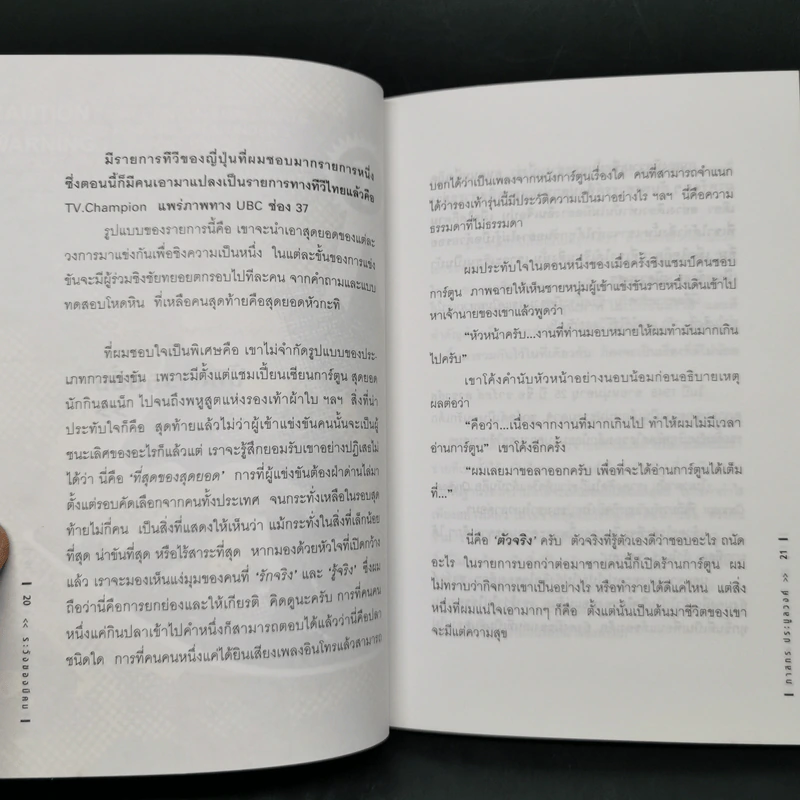 มีรายการทีวีของญี่ปุ่นที่ผมชอบมากรายการหนึ่ง
ซึ่งตอนนี้ก็มีคนเอามาแปลงเป็นรายการทางทีวีไทยแล้วคือ
TV.Champion แพร่ภาพทาง UBC ช่อง 37
รูปแบบของรายการนี้คือ เขาจะนำเอาสุดยอดของแต่ละ
วงการมาแข่งกันเพื่อชิงความเป็นหนึ่ง ในแต่ละขั้นของการแข่ง
ขันจะมีผู้ร่วมชิงชัยทยอยตกรอบไปทีละคน จากคำถามและแบบ
ทดสอบโหดหิน ที่เหลือคนสุดท้ายคือสุดยอดหัวกะทิ
ที่ผมชอบใจเป็นพิเศษคือ เขาไม่จำกัดรูปแบบของประ-
เภทการแข่งขัน เพราะมีตั้งแต่แชมเปี้ยนเซียนการ์ตูน สุดยอด
นักกินสแน็ก ไปจนถึงพหูสูตแห่งรองเท้าผ้าใบ ฯลฯ สิ่งที่น่า
ประทับใจก็คือ สุดท้ายแล้วไม่ว่าผู้เข้าแข่งขันคนนั้นจะเป็นผู้
ชนะเลิศของอะไรก็แล้วแต่ เราจะรู้สึกยอมรับเขาอย่างปฏิเสธไม่
ได้ว่า นี่คือ ‘ที่สุดของสุดยอด’ การที่ผู้แข่งขันต้องฝ่าด่านไล่มา
ตั้งแต่รอบคัดเลือกจากคนทั้งประเทศ จนกระทั่งเหลือในรอบสุด
ท้ายไม่กี่คน เป็นสิ่งที่แสดงให้เห็นว่า แม้กระทั่งในสิ่งที่เล็กน้อย
ที่สุด น่าขันที่สุด หรือไร้สาระที่สุด หากมองด้วยหัวใจที่เปิดกว้าง
แล้ว เราจะมองเห็นแง่มุมของคนที่ ‘รักจริง’ และ ‘รู้จริง’ ซึ่งผม
ถือว่านี่คือการยกย่องและให้เกียรติ คิดดูนะครับ การที่คนคน
หนึ่งแค่กินปลาเข้าไปคำหนึ่งก็สามารถตอบได้แล้วว่านี่คือปลา
ชนิดใด การที่คนคนหนึ่งแค่ได้ยินเสียงเพลงอินโทรแล้วสามารถ
20 << ระวังของมีคม
บอกได้ว่าเป็นเพลงจากหนังการ์ตูนเรื่องใด คนที่สามารถจำแนก
ได้ว่ารองเท้ารุ่นนี้มีประวัติความเป็นมาอย่างไร ฯลฯ นี่คือความ
ธรรมดาที่ไม่ธรรมดา
ผมประทับใจในตอนหนึ่งของเมื่อครั้งชิงแชมป์คนชอบ
การ์ตูน ภาพฉายให้เห็นชายหนุ่มผู้เข้าแข่งขันรายหนึ่งเดินเข้าไป
หาเจ้านายของเขาแล้วพูดว่า
“หัวหน้าครับ...งานที่ท่านมอบหมายให้ผมทำมันมากเกิน
ไปครับ”
เขาโค้งคำนับหัวหน้าอย่างนอบน้อมก่อนอธิบายเหตุ
ผลต่อว่า
“คือว่า...เนื่องจากงานที่มากเกินไป ทำให้ผมไม่มีเวลา
อ่านการ์ตูน” เขาโค้งอีกครั้ง
“ผมเลยมาขอลาออกครับ เพื่อที่จะได้อ่านการ์ตูนได้เต็ม
ที่...”
นี่คือ ‘ตัวจริง’ ครับ ตัวจริงที่รู้ตัวเองดีว่าชอบอะไร ถนัด
อะไร ในรายการบอกว่าต่อมาชายคนนี้ก็เปิดร้านการ์ตูน ผม
ไม่ทราบว่ากิจการเขาเป็นอย่างไร หรือทำรายได้ดีแค่ไหน แต่สิ่ง
หนึ่งที่ผมแน่ใจเอามากๆ ก็คือ ตั้งแต่นั้นเป็นต้นมาชีวิตของเขา
จะมีแต่ความสุข
ภาสกร ประมูลวงศ์ >> 21